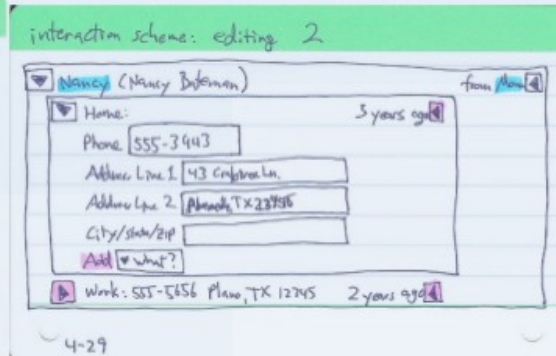 interaction scheme: editing 2
Nancy (Nancy Bateman) from Mom
Home: 3 years ago
Phone 555-3443
Address Line 1 43 Crabtree Ln.
Address Line 2 TX
City/state/zip
Add what?
Work: 555-5656 Plano, TX 12345 2 years ago
4-29